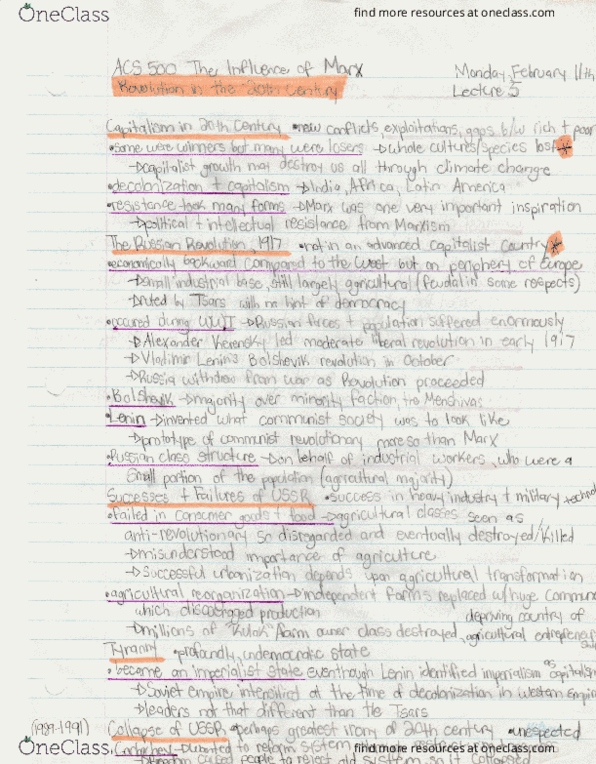 OneClass
find more resources at oneclass.com
ACS 500 The Influence of Marx
Monday, February 11th
Revolution in the 20th Century
Lecture 5
Capitalism in 20th Century • new conflicts, exploitations, gaps b/w rich + poor
• some were winners but many were losers → whole cultures/species lost *
→ capitalist growth may destroy us all through climate change
• decolonization + capitalism → India, Africa, Latin America
• resistance took many forms → Marx was one very important inspiration
→ political + intellectual resistance from Marxism
The Russian Revolution, 1917 • not in an advanced capitalist country *
• economically backward compared to the west but on periphery of Europe
→ small industrial base, still largely agricultural (feudal in some respects)
→ ruled by Tsars with no hint of democracy
• occured during → Russian forces + population suffered enormously
→ Alexander Kerensky led moderate liberal revolution in early 1917
→ Vladimir Lenin's Bolshevik revolution in October
→ Russia withdrew from war as Revolution proceeded
• Bolshevik → majority over minority faction, the
• Lenin → invented what communist society was to look like
→ prototype of communist revolutionary more so than Marx
• Russian class structure → on behalf of industrial workers, who were a
small portion of the population (agricultural majority)
Successes + Failures of USSR • success in heavy industry + military
• failed in consumer goods + food → agricultural classes seen as
anti-revolutionary so disregarded and eventually destroyed/killed
→ misunderstood importance of agriculture
→ successful urbanization depends upon agricultural transformation
• agricultural reorganization → independent farms replaced w/ huge
which discouraged production
depriving country of
→ millions of "Kulak" farm owner class destroyed, agricultural
Tyranny • profoundly, undemocratic state
• become an imperialist state eventhough Lenin identified imperialism as
→ Soviet empire intensified at the time of decolonization in western
→ leaders not that different than the Tsars
(1989-1991) Collapse of USSR • perhaps greatest irony of 20th century, • unexpected
→ wanted to reform system
OneClass
find more resources at oneclass.com
caused people to reject old system, so it collapsed